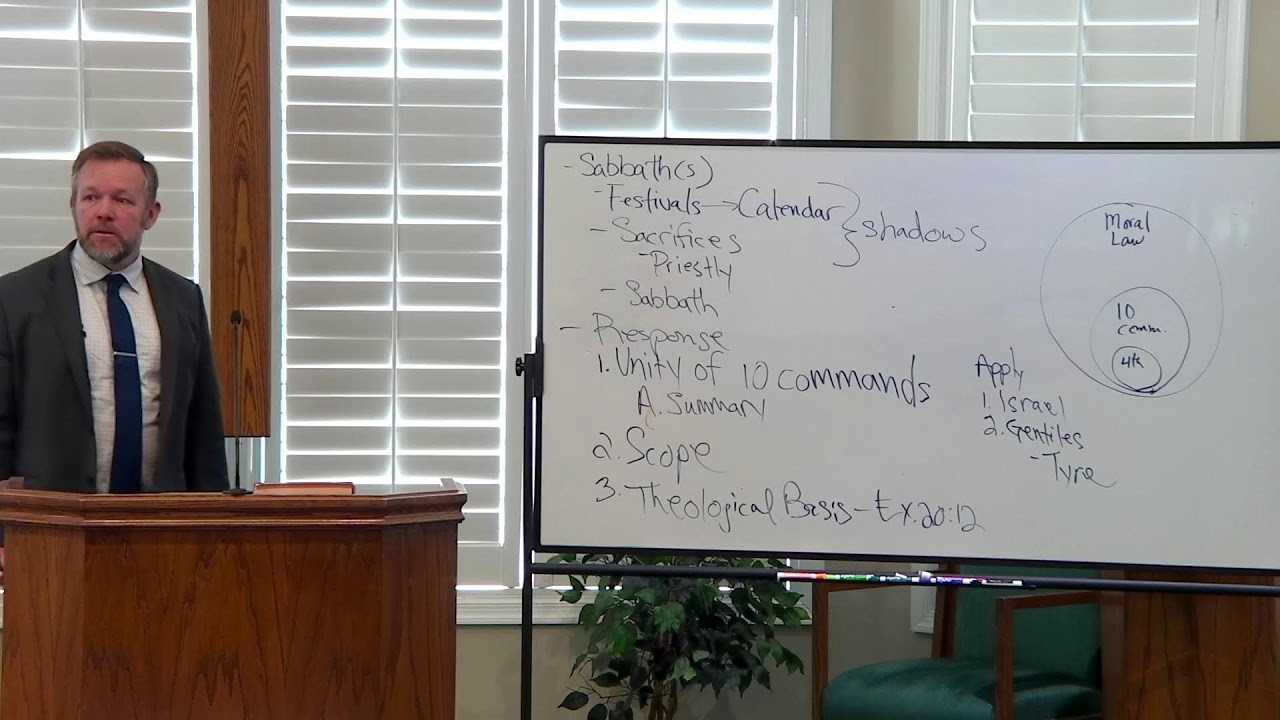 - Sabbath(s)
- Festivals → Calendar } shadows
- Sacrifices
- Priestly
- Sabbath
- Response
1. Unity of 10 commands
A. Summary
2. Scope
3. Theological Basis - Ex. 20:12
Apply
1. Israel
2. Gentiles
- Tyre
Moral
Law
10
comm.
4th